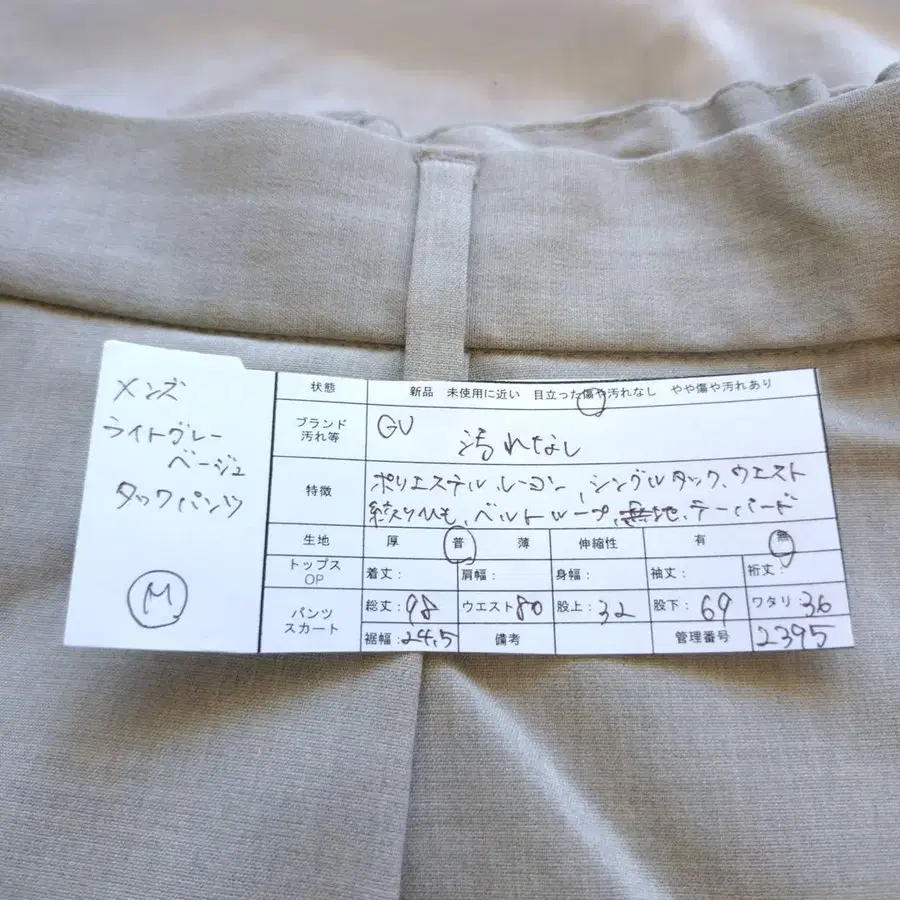 メンズ
ライトグレー
ベージュ
タックパンツ
M
状態 新品 未使用に近い 目立った傷や汚れなし やや傷や汚れあり
ブランド GU
汚れ等 汚れなし
特徴 ポリエステル、レーヨン、シングルタック、ウエスト
絞りひも、ベルトループ、無地、テーパード
生地 厚 普 薄 伸縮性 有 無
トップス
OP 着丈: 肩幅: 身幅: 袖丈: 裄丈:
パンツ
スカート 総丈:98 ウエスト80 股上:32 股下:69 ワタリ:36
裾幅:24.5 備考 管理番号 2395